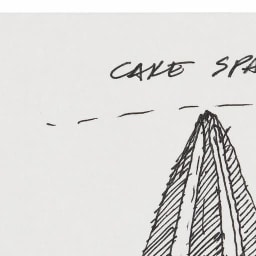 CAKE SPA